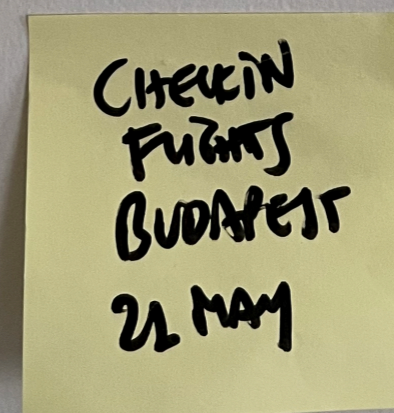 CHECKIN
FLIGHTS
BUDAPEST
21 MAY